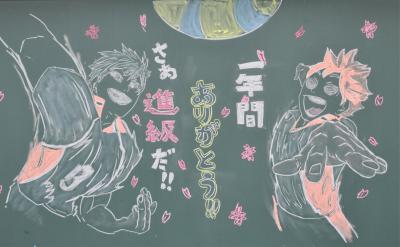 一年間
ありがとう!!
さぁ
進級だ!!